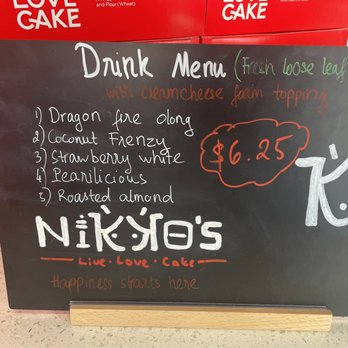 LOVE
CAKE
and Flour (Wheat)
LOVE
CAKE
Drink Menu (Fresh loose leaf
with creamcheese foam topping
1) Dragon fire olong
2) Coconut Frenzy
3) Strawberry white
4) Pearilicious
5) Roasted almond
$6.25
NiKKO's
Live · Love · Cake
Happiness starts here